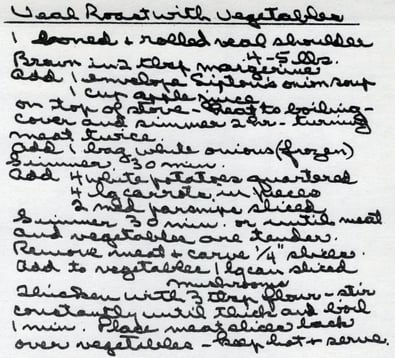 Veal Roast with Vegetables
1 boned & rolled veal shoulder
4-5 lbs.
Brown in 2 tbsp margerine
Add 1 envelope Lipton's onion soup
1 cup apple juice
on top of stove - Heat to boiling -
cover and simmer 2 hr - turning
meat twice.
Add 1 bag white onions (frozen)
Simmer 30 min.
Add 4 white potatoes quartered
4 lg carrots in pieces
2 med parsnips sliced
Simmer 30 min. or until meat
and vegetables are tender.
Remove meat & carve 1/4" slices.
Add to vegetables 1 lg can sliced
mushrooms
Thicken with 3 tbsp flour - stir
constantly until thick and boil
1 min. Place meat slices back
over vegetables - keep hot & serve.